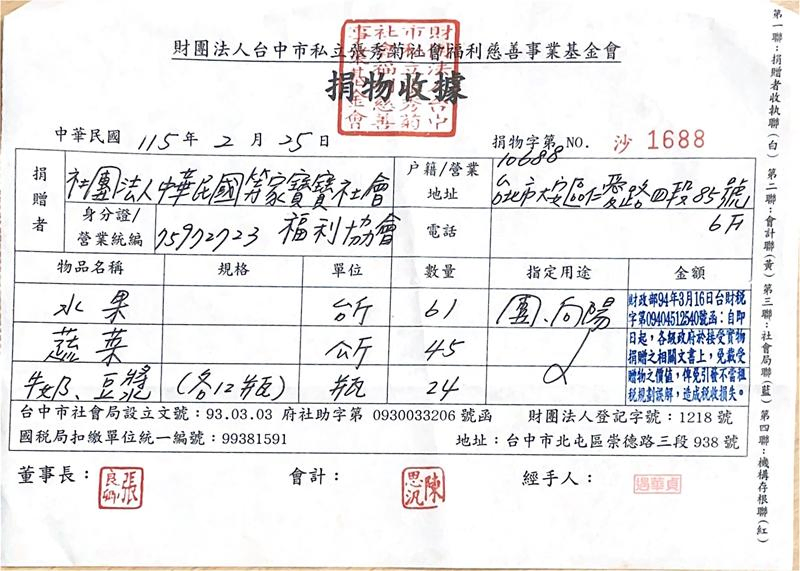 財團法人台中市私立張秀菊社會福利慈善事業基金會
捐物收據
中華民國 115 年 2 月 25 日
捐物字第 NO. 沙 1688
捐贈者
社團法人中華民國勞家寶寶社會
福利協會
身分證/
營業統編
75972723
户籍/營業
地址
10688
台北市大安區仁愛路四段85號
6F
電話
物品名稱 規格 單位 數量 指定用途 金額
水果 台斤 61 團、向陽
蔬菜 公斤 45
牛奶、豆漿 (各12瓶) 瓶 24
財政部94年3月16日台財稅
字第09404512540號函：自即
日起，各級政府於接受實物
捐贈之相關文書上，免載受
贈物之價值，俾免引發不當租
稅規劃誤解，造成稅收損失。
台中市社會局設立文號：93.03.03 府社助字第 0930033206 號函 財團法人登記字號：1218 號
國稅局扣繳單位統一編號：99381591 地址：台中市北屯區崇德路三段 938 號
董事長：
會計： 陳思汎
經手人：
第一聯：捐贈者收執聯(白) 第二聯：會計聯(黃) 第三聯：社會局聯(藍) 第四聯：機構存根聯(紅)